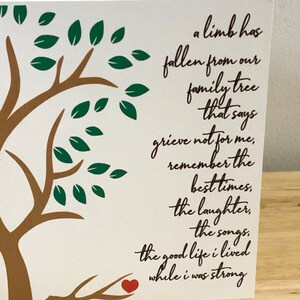 a limb has
fallen from our
family tree
that says
grieve not for me,
remember the
best times,
the laughter,
the songs,
the good life i lived
while i was strong